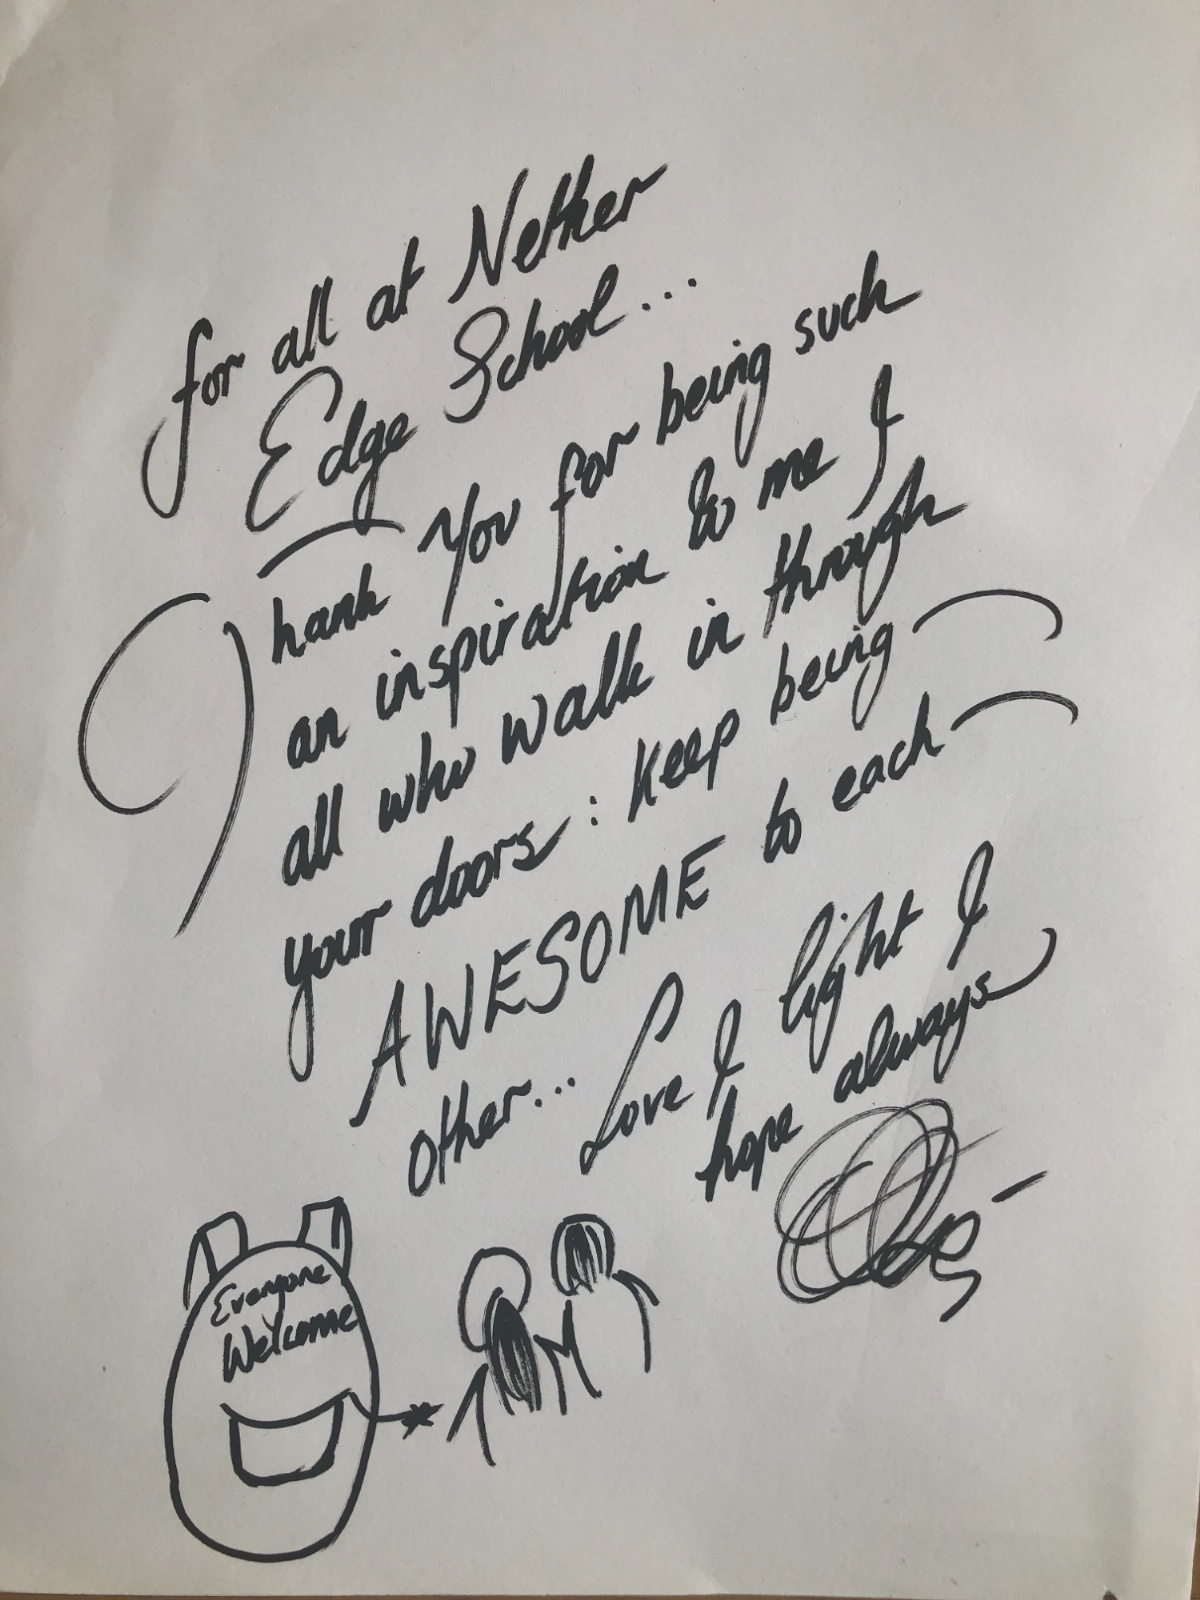 for all at Nether
Edge School...
Thank You for being such
an inspiration to me &
all who walk in through
your doors: keep being
AWESOME to each
other... Love & light &
hope always
Everyone
Welcome